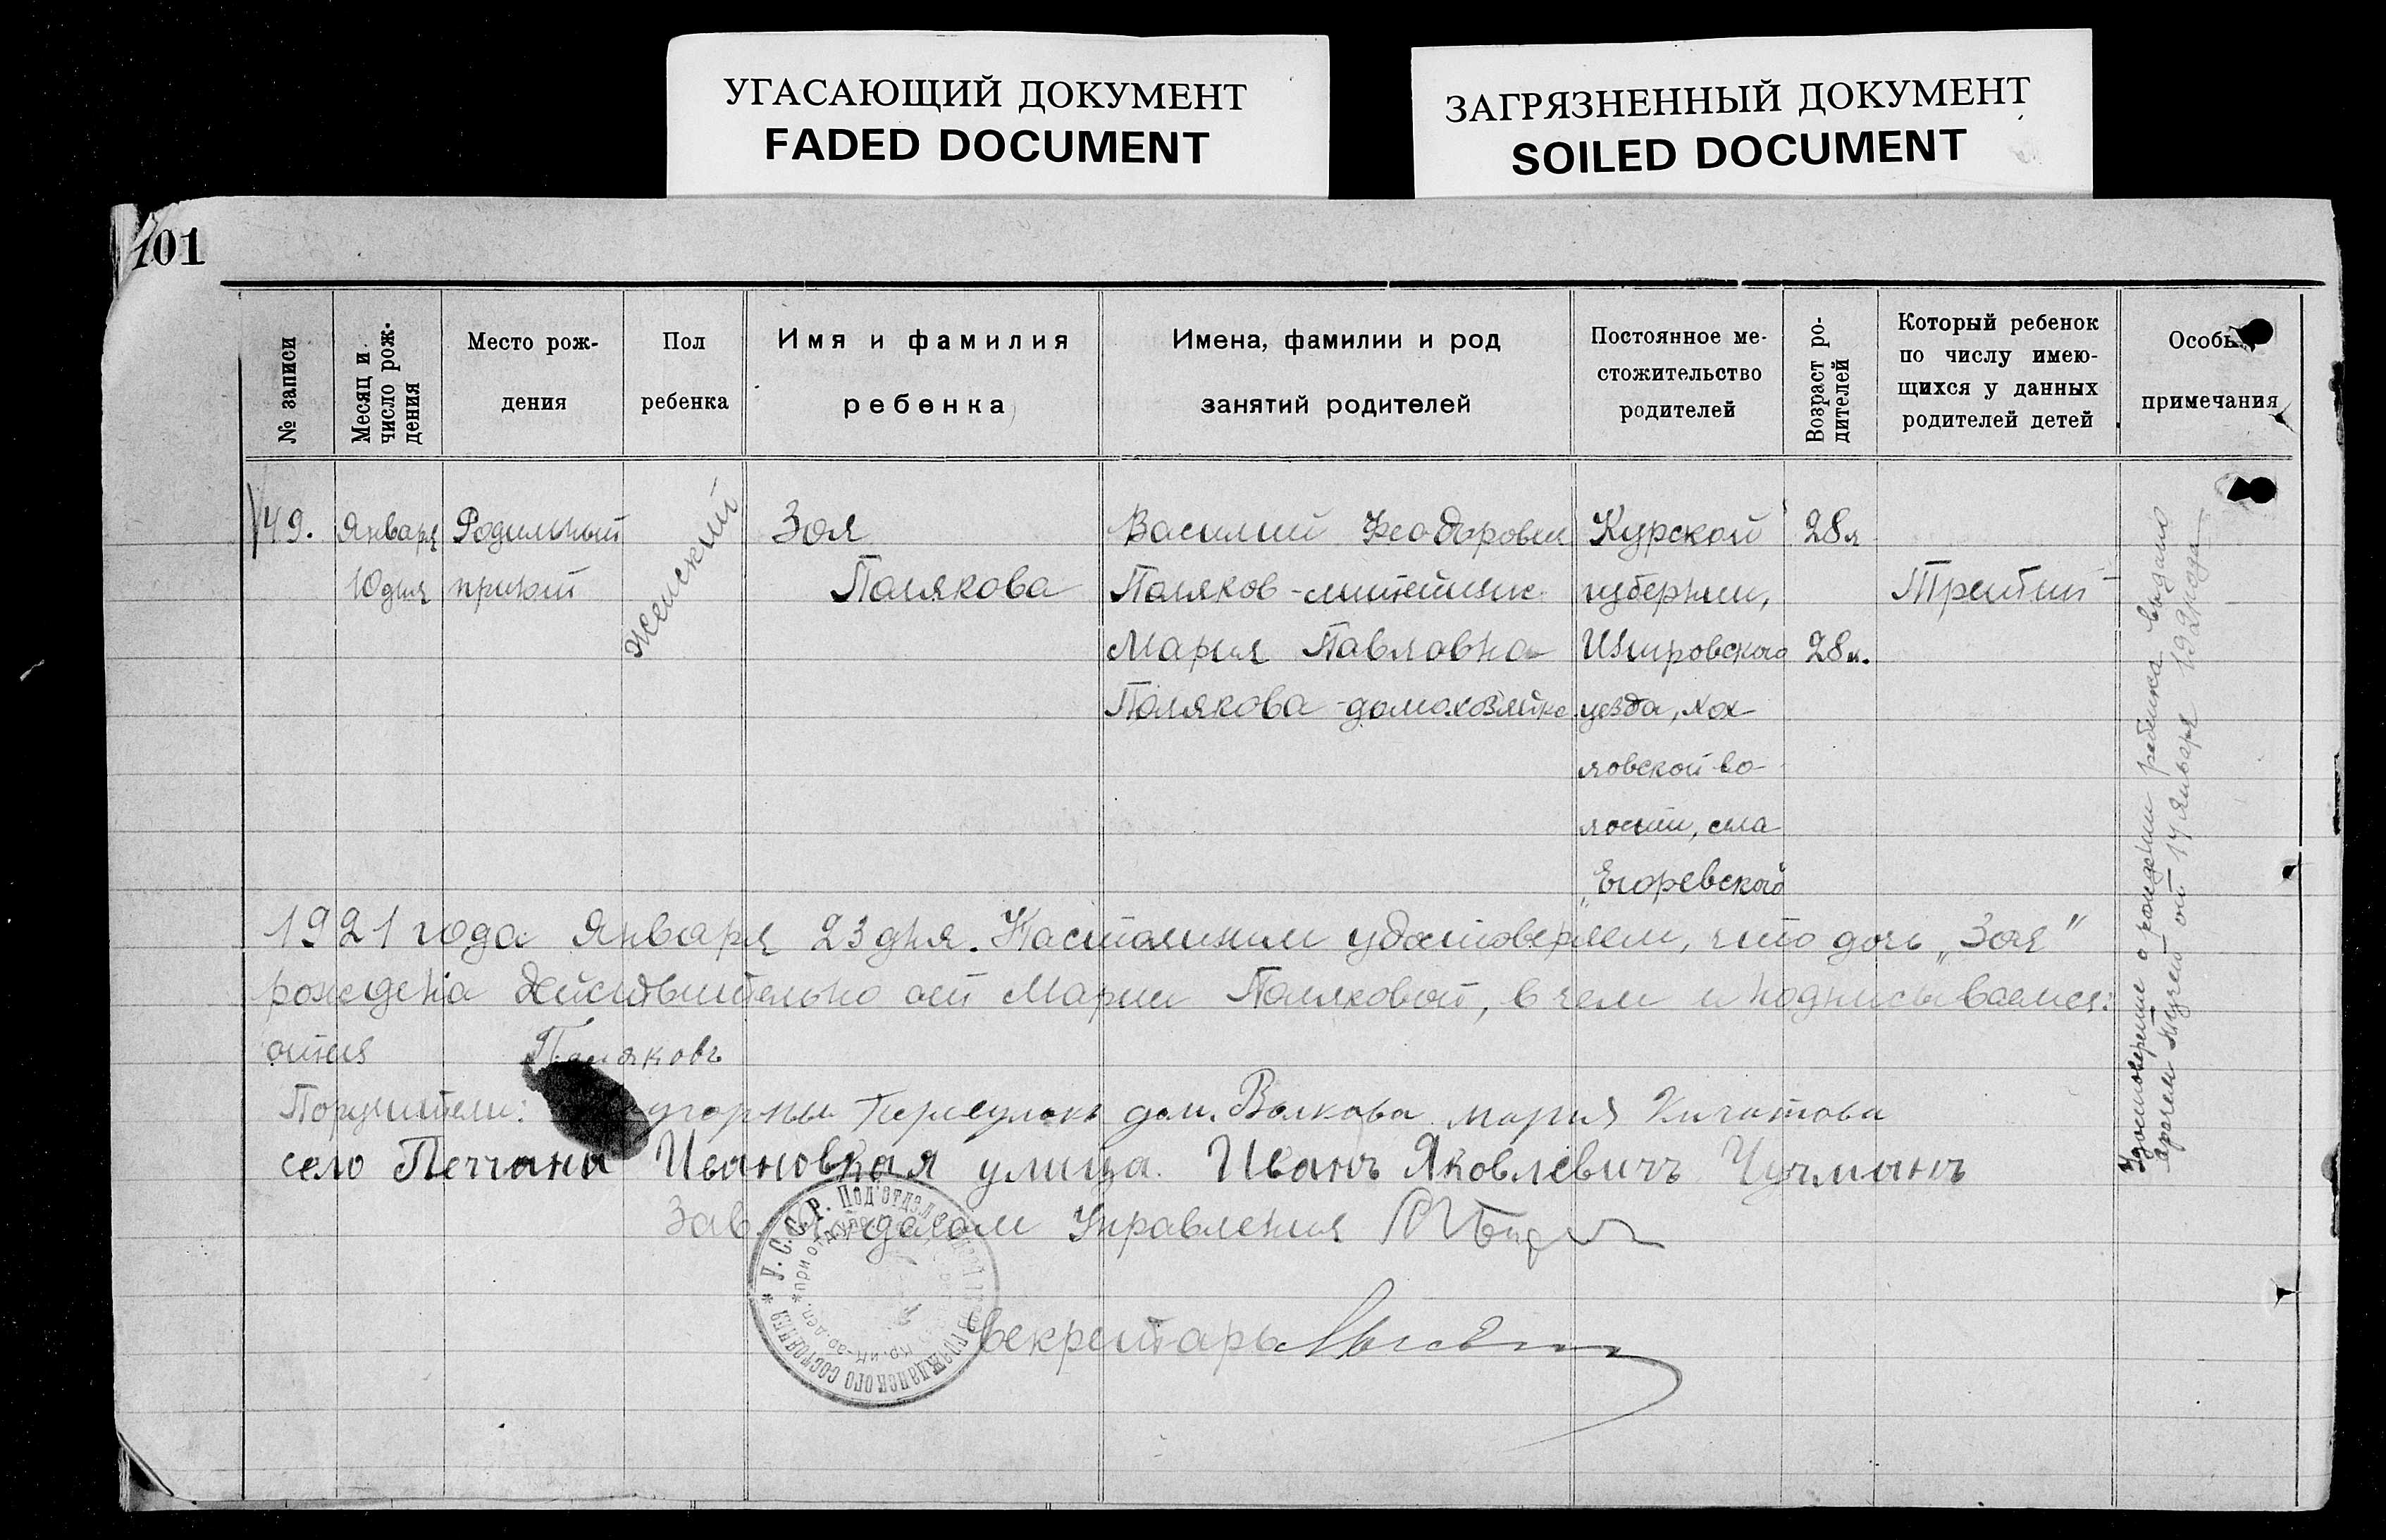 УГАСАЮЩИЙ ДОКУМЕНТ
FADED DOCUMENT
ЗАГРЯЗНЕННЫЙ ДОКУМЕНТ
SOILED DOCUMENT
101
№ записи
Месяц и
число рож-
дения
Место рож-
дения
Пол
ребенка
Имя и фамилия
ребенка
Имена, фамилии и род
занятий родителей
Постоянное ме-
стожительство
родителей
Возраст ро-
дителей
Который ребенок
по числу имею-
щихся у данных
родителей детей
Особы
примечания
49.
Января
10 дня
Родильный
приют
женский
Зоя
Полякова
Василий Феодорович
Поляков - литейщик
Мария Павловна
Полякова - домохозяйка
Курской
губернии,
Щигровского
уезда, Хох
ловской во-
лости, села
„Егоревского"
28 л
28 л.
Третий
Удостоверение о рождении ребенка выдано
от 17 Января 1921 года
1921 года Января 23 дня. Настоящим удостоверяем, что дочь „Зоя"
рождена действительно от Марии Поляковой, в чем и подписываемся:
отец Поляковъ
Поручители: дом. Волкова Мария
село Печчани Ивановкая улица. Иванъ Яковлевичъ Чучманъ
Зав. Управления
Секретарь
У. С. С. Р. Под'отдел гражданского состояния